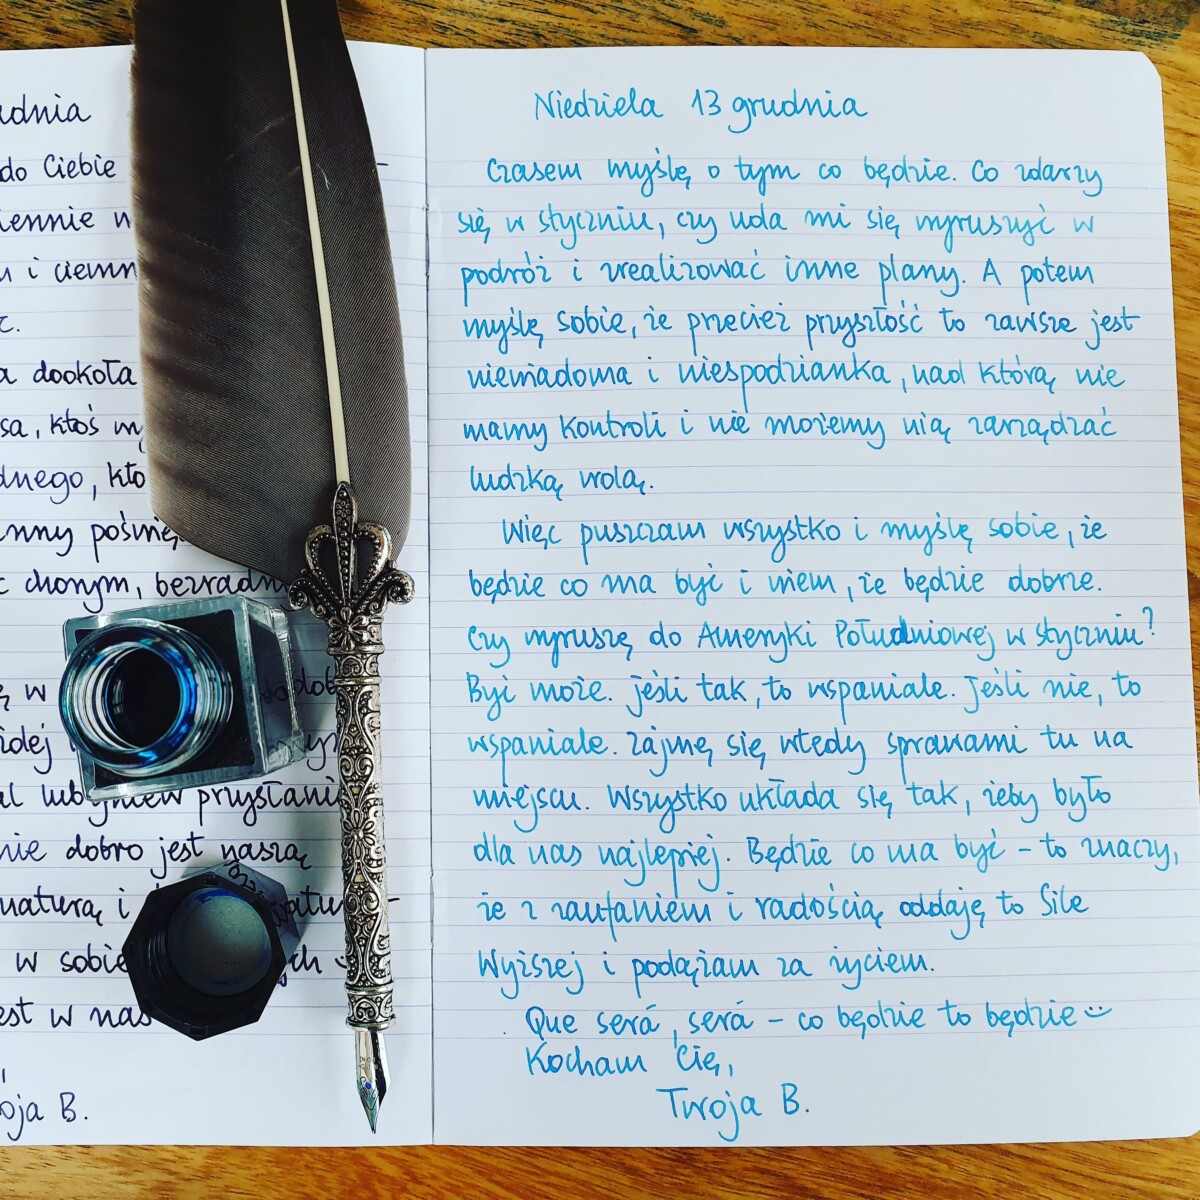 udnia
do Ciebie
iennie
i ciemn
c.
a dookoła
sa, ktoś
dnego, kto
nny
chorym, bezradn
w
lubczyków przysłani
nie dobro jest naszą
naturą i
w sobie
est w nas
oja B.
Niedziela 13 grudnia
Czasem myślę o tym co będzie. Co zdarzy
się w styczniu, czy uda mi się wyruszyć w
podróż i zrealizować inne plany. A potem
myślę sobie, że przecież przyszłość to zawsze jest
niewiadoma i niespodzianka, nad którą nie
mamy kontroli i nie możemy nią zarządzać
ludzką wolą.
Więc puszczam wszystko i myślę sobie, że
będzie co ma być i wiem, że będzie dobrze.
Czy wyruszę do Ameryki Południowej w styczniu?
Być może. Jeśli tak, to wspaniale. Jeśli nie, to
wspaniale. Zajmę się wtedy sprawami tu na
miejscu. Wszystko układa się tak, żeby było
dla nas najlepiej. Będzie co ma być - to znaczy,
że z zaufaniem i radością oddaję to Sile
Wyższej i podążam za życiem.
Que será, será - co będzie to będzie
Kocham Cię,
Twoja B.